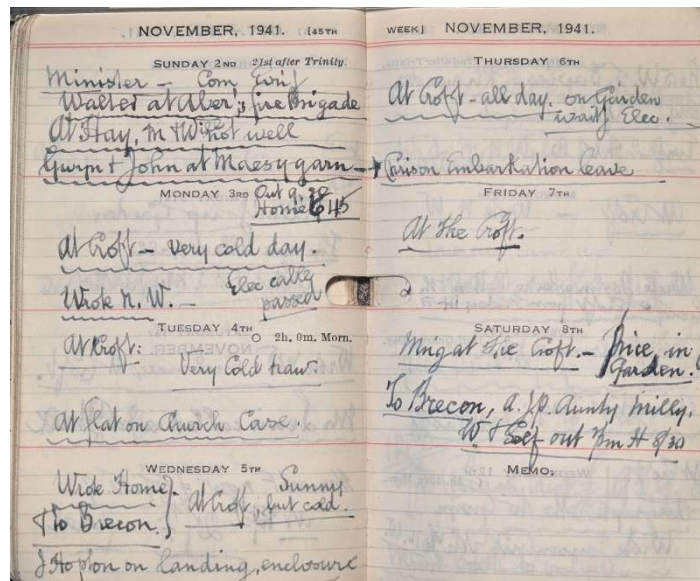 NOVEMBER, 1941. [45TH
SUNDAY 2ND 21st after Trinity.
Minister - Com
Walter at Aber; fire Brigade
At Hay, M & W not well
Gwyn & John at Maesygarn
MONDAY 3RD Out 9.30
Home 6 45
At Croft - Very cold day.
Wrote N. W. - Elec
passed
TUESDAY 4TH O 2h. 0m. Morn.
At Croft:
Very Cold
At flat on Church Case.
WEDNESDAY 5TH
Wrote Home Sunny
& to Brecon. } At Croft, but cold.
on landing, enclosure
WEEK] NOVEMBER, 1941.
THURSDAY 6TH
At Croft - all day. on Garden
Elec.
Embarkation leave
FRIDAY 7TH
At The Croft.
SATURDAY 8TH
at The Croft. - Price in
Garden.
To Brecon, A. J. D. Aunty Milly,
W & Self out 8/30
MEMO.